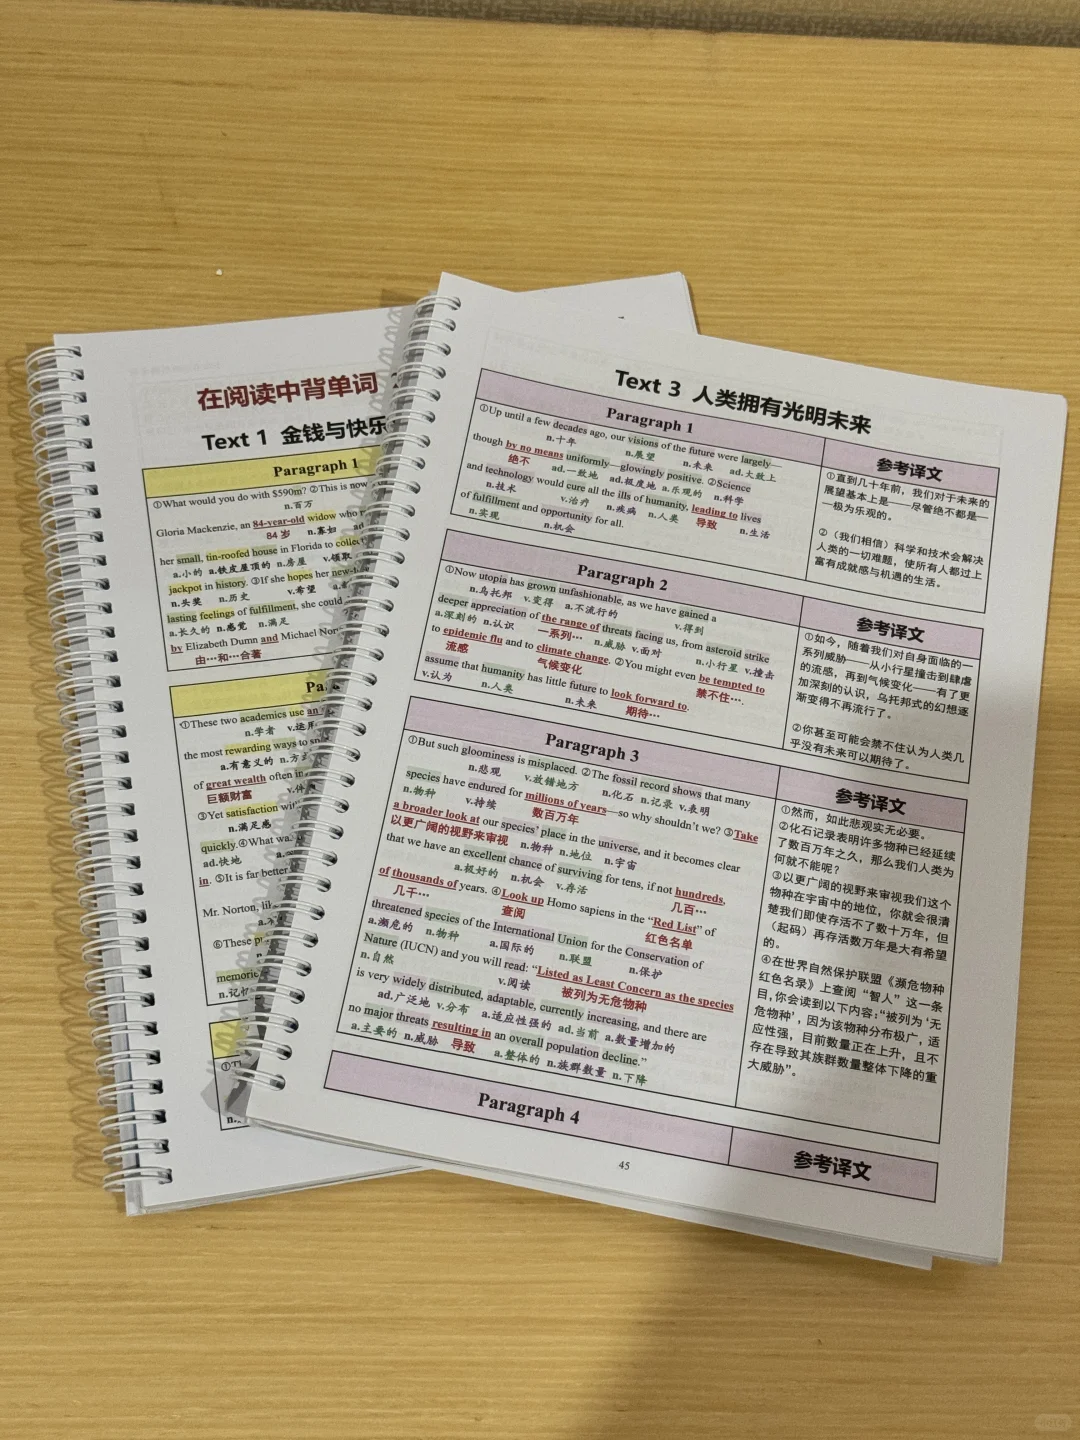 在阅读中背单词
Text 1 金钱与快乐
Paragraph 1
①What would you do with $590m? ②This is now
n.百万
Gloria Mackenzie, an 84-year-old widow who
84 岁 n.寡妇
her small, tin-roofed house in Florida to collect
a.小的 a.铁皮屋顶的 n.房屋 v.领取
jackpot in history. ③If she hopes her new-
n.头奖 n.历史 v.希望
lasting feelings of fulfillment, she could
a.长久的 n.感觉 n.满足
by Elizabeth Dunn and Michael Nor
由…和…合著
①These two academics use an
n.学者 v.运用
the most rewarding ways to
a.有意义的 n.方式
of great wealth often in
巨额财富
③Yet satisfaction
n.满足感
quickly.④What
ad.快地
in. ⑤It is far better
Mr. Norton,
⑥These
Text 3 人类拥有光明未来
Paragraph 1
参考译文
①Up until a few decades ago, our visions of the future were largely—
n.十年 n.展望 n.未来 ad.大致上
though by no means uniformly—glowingly positive. ②Science
绝不 ad.一致地 ad.极度地 a.乐观的 n.科学
and technology would cure all the ills of humanity, leading to lives
n.技术 v.治疗 n.疾病 n.人类 导致 n.生活
of fulfillment and opportunity for all.
n.实现 n.机会
①直到几十年前，我们对于未来的
展望基本上是——尽管绝不都是—
—极为乐观的。
②（我们相信）科学和技术会解决
人类的一切难题，使所有人都过上
富有成就感与机遇的生活。
Paragraph 2
参考译文
①Now utopia has grown unfashionable, as we have gained a
n.乌托邦 v.变得 a.不流行的 v.得到
deeper appreciation of the range of threats facing us, from asteroid strike
a.深刻的 n.认识 一系列… n.威胁 v.面对 n.小行星 v.撞击
to epidemic flu and to climate change. ②You might even be tempted to
流感 气候变化 禁不住…
assume that humanity has little future to look forward to.
v.认为 n.人类 n.未来 期待…
①如今，随着我们对自身面临的一
系列威胁——从小行星撞击到肆虐
的流感，再到气候变化——有了更
加深刻的认识，乌托邦式的幻想逐
渐变得不再流行了。
②你甚至可能会禁不住认为人类几
乎没有未来可以期待了。
Paragraph 3
参考译文
①But such gloominess is misplaced. ②The fossil record shows that many
n.悲观 v.放错地方 n.化石 n.记录 v.表明
species have endured for millions of years—so why shouldn't we? ③Take
n.物种 v.持续 数百万年
a broader look at our species' place in the universe, and it becomes clear
以更广阔的视野来审视 n.物种 n.地位 n.宇宙
that we have an excellent chance of surviving for tens, if not hundreds,
a.极好的 n.机会 v.存活 几百…
of thousands of years. ④Look up Homo sapiens in the "Red List" of
几千… 查阅 红色名单
threatened species of the International Union for the Conservation of
a.濒危的 n.物种 a.国际的 n.联盟 n.保护
Nature (IUCN) and you will read: "Listed as Least Concern as the species
n.自然 v.阅读 被列为无危物种
is very widely distributed, adaptable, currently increasing, and there are
ad.广泛地 v.分布 a.适应性强的 ad.当前 a.数量增加的
no major threats resulting in an overall population decline."
a.主要的 n.威胁 导致 a.整体的 n.族群数量 n.下降
①然而，如此悲观实无必要。
②化石记录表明许多物种已经延续
了数百万年之久，那么我们人类为
何就不能呢？
③以更广阔的视野来审视我们这个
物种在宇宙中的地位，你就会很清
楚我们即使存活不了数十万年，但
（起码）再存活数万年是大有希望
的。
④在世界自然保护联盟《濒危物种
红色名录》上查阅“智人”这一条
目，你会读到以下内容：“被列为‘无
危物种’，因为该物种分布极广，适
应性强，目前数量正在上升，且不
存在导致其族群数量整体下降的重
大威胁”。
Paragraph 4
参考译文
45